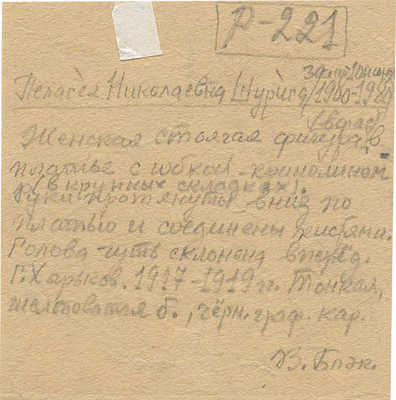 Р-221
Пелагея Николаевна Шурига
1900-1980
Женская стоячая фигура, в
платье с юбкой-кринолином
в крупных складках).
Руки протянуты вниз по
платью и соединены кистями.
Голова чуть склонена вперед.
Г. Харьков. 1917-1919 гг. Тонкая,
желтоватая б., чёрн. граф. кар.
В. Блэк.